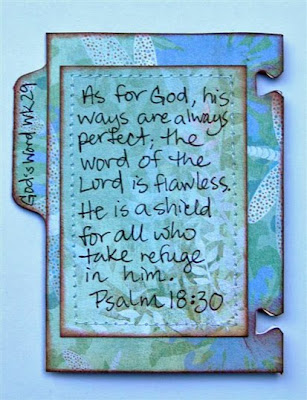 God's Word Wk29
As for God, his
ways are always
perfect; the
word of the
Lord is flawless.
He is a shield
for all who
take refuge
in him.
Psalm 18:30